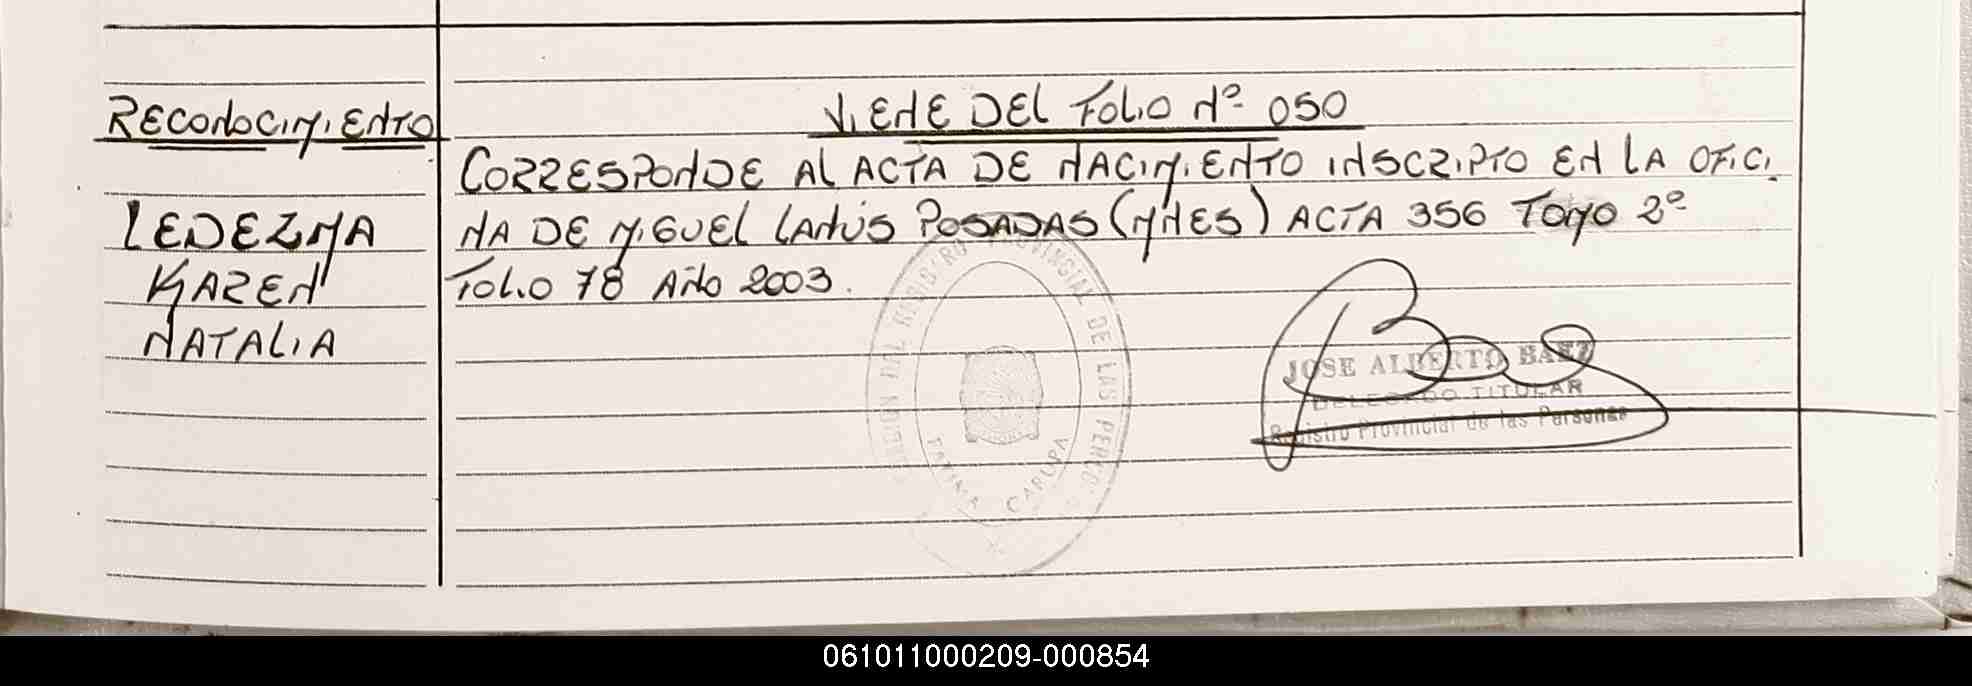 RECONOCIMIENTO
LEDEZMA
KAREN
NATALIA
VIENE DEL FOLIO Nº 050
CORRESPONDE AL ACTA DE NACIMIENTO INSCRIPTO EN LA OFICI
NA DE MIGUEL LANÚS POSADAS (MNES) ACTA 356 TOMO 2º
FOLIO 78 AÑO 2003.
DEL REGISTRO PROVINCIAL DE LAS PERSO
CARUPA
JOSE ALBERTO BAEZ
DELEGADO TITULAR
Registro Provincial de las Personas
061011000209-000854